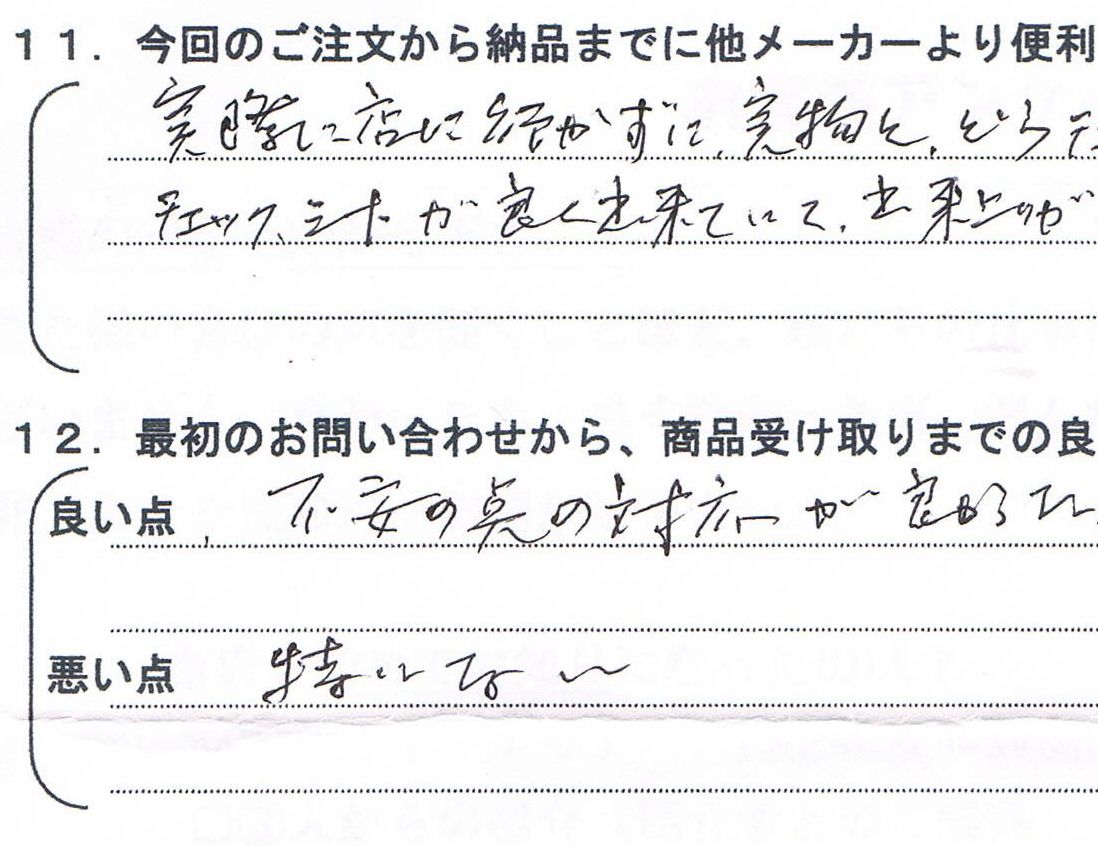 11. 今回のご注文から納品までに他メーカーより便利
実際に店に行かずに、実物と、どう
チェックシートが良く出来ていて、出来上りが
12. 最初のお問い合わせから、商品受け取りまでの良
良い点 不安の点の対応が良かった
悪い点 特にない